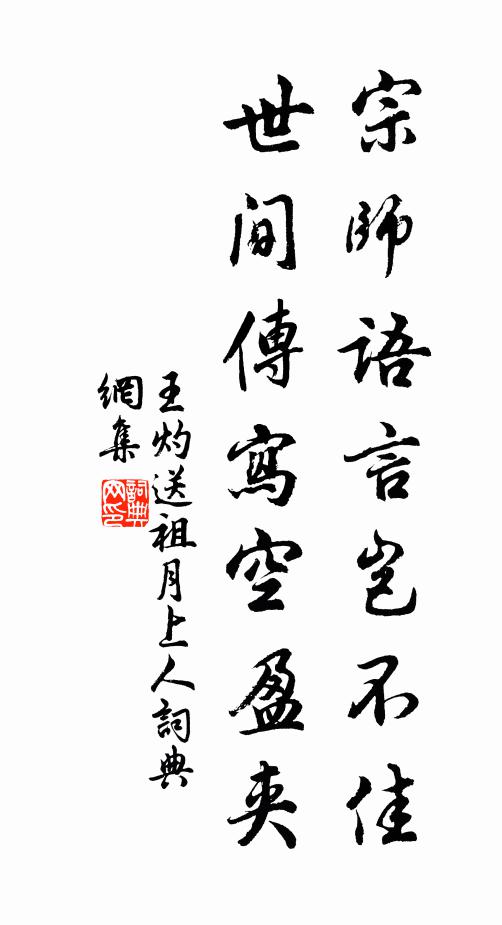 宗師語言豈不佳
世間傳寫空盈夾
王灼送祖月上人詞典
網集
詞典
网印